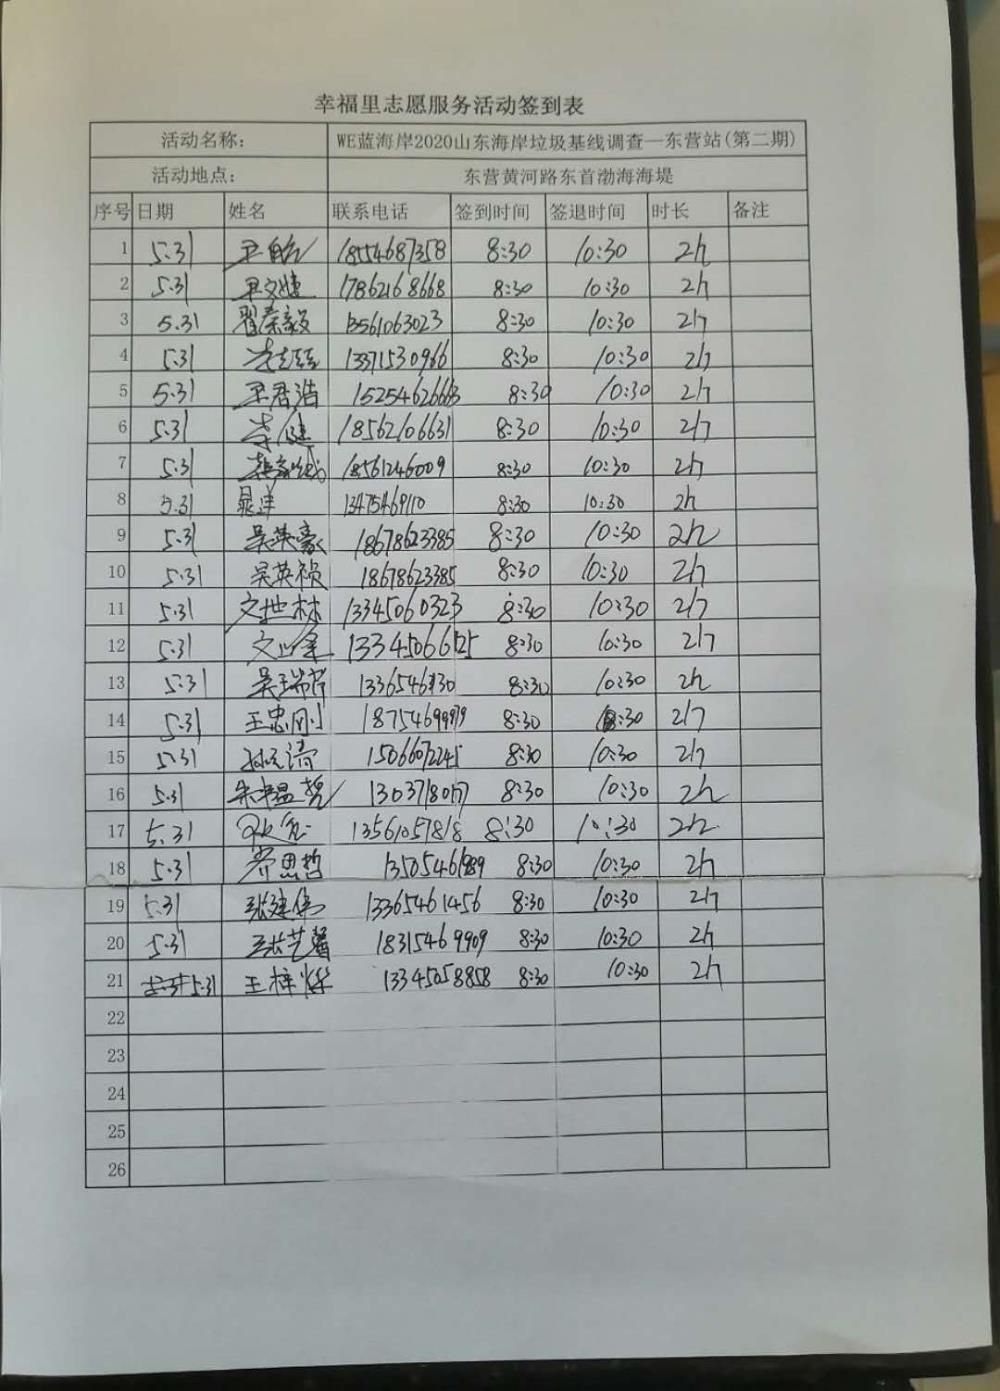 幸福里志愿服务活动签到表
活动名称: WE蓝海岸2020山东海岸垃圾基线调查—东营站(第二期)
活动地点: 东营黄河路东首渤海海堤
序号 日期 姓名 联系电话 签到时间 签退时间 时长 备注
1 5.31 18554687358 8:30 10:30 2h
2 5.31 尹文婕 17862168668 8:30 10:30 2h
3 5.31 翟秦毅 13561063023 8:30 10:30 2h
4 5.31 13371530966 8:30 10:30 2h
5 5.31 尹君浩 15254626663 8:30 10:30 2h
6 5.31 李健 18562106631 8:30 10:30 2h
7 5.31 18561246009 8:30 10:30 2h
8 5.31 13475469110 8:30 10:30 2h
9 5.31 吴英豪 18678623385 8:30 10:30 2h
10 5.31 吴英祯 18678623385 8:30 10:30 2h
11 5.31 文地林 13345060323 8:30 10:30 2h
12 5.31 13345066125 8:30 10:30 2h
13 5.31 8:30 10:30 2h
14 5.31 王忠刚 8:30 10:30 2h
15 5.31 15066072241 8:30 10:30 2h
16 5.31 8:30 10:30 2h
17 5.31 13561057818 8:30 10:30 2h
18 5.31 齐思哲 8:30 10:30 2h
19 5.31 张建伟 13365461456 8:30 10:30 2h
20 5.31 张艺馨 18315469909 8:30 10:30 2h
21 5.31 王梓烨 13345058858 8:30 10:30 2h
22
23
24
25
26